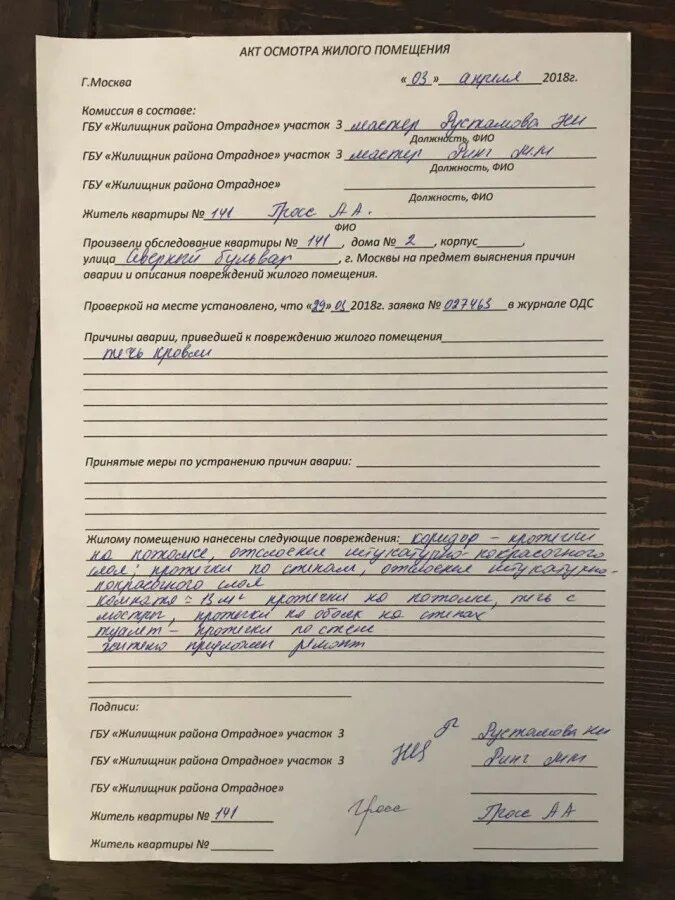 АКТ ОСМОТРА ЖИЛОГО ПОМЕЩЕНИЯ
Г.Москва «03» апреля 2018г.
Комиссия в составе:
ГБУ «Жилищник района Отрадное» участок 3 мастер Рустамова НИ
Должность, ФИО
ГБУ «Жилищник района Отрадное» участок 3 мастер Ринг ММ
Должность, ФИО
ГБУ «Жилищник района Отрадное»
Должность, ФИО
Житель квартиры № 141 Гросс А А.
ФИО
Произвели обследование квартиры № 141, дома № 2, корпус
улица Северный бульвар, г. Москвы на предмет выяснения причин
аварии и описания повреждений жилого помещения.
Проверкой на месте установлено, что «29» 03 2018г. заявка № 027463 в журнале ОДС
Причины аварии, приведшей к повреждению жилого помещения
течь кровли
Принятые меры по устранению причин аварии:
Жилому помещению нанесены следующие повреждения: коридор – протечки
на потолке, отслоение штукатурно-покрасочного
слоя; протечки по стенам, отслоение штукатурно-
покрасочного слоя
комната = 13 м² протечки на потолке, течь с
люстры, протечки на обоях на стенах
туалет – протечки по стене
жителю предложен ремонт
Подписи:
ГБУ «Жилищник района Отрадное» участок 3 Рустамова НИ
ГБУ «Жилищник района Отрадное» участок 3 Ринг ММ
ГБУ «Жилищник района Отрадное»
Житель квартиры № 141 Гросс Гросс А А
Житель квартиры №